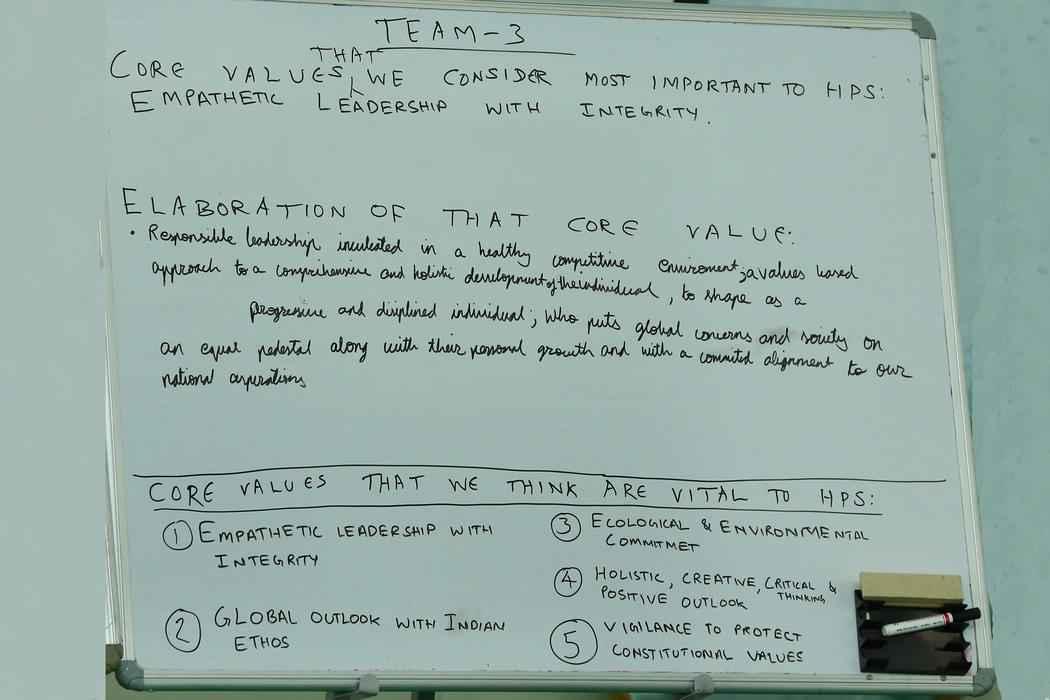 TEAM-3
THAT
CORE VALUES, WE CONSIDER MOST IMPORTANT TO HPS:
EMPATHETIC LEADERSHIP WITH INTEGRITY.
ELABORATION OF THAT CORE VALUE:
• Responsible leadership inculcated in a healthy competitive environment; a values based
approach to a comprehensive and holistic development of the individual, to shape as a
progressive and diciplined individual; who puts global concerns and society on
an equal pedestal along with their personal growth and with a commited alignment to our
national aspirations
CORE VALUES THAT WE THINK ARE VITAL TO HPS:
① EMPATHETIC LEADERSHIP WITH
INTEGRITY
② GLOBAL OUTLOOK WITH INDIAN
ETHOS
③ ECOLOGICAL & ENVIRONMENTAL
COMMITMET
④ HOLISTIC, CREATIVE, CRITICAL &
THINKING
POSITIVE OUTLOOK
⑤ VIGILANCE TO PROTECT
CONSTITUTIONAL VALUES